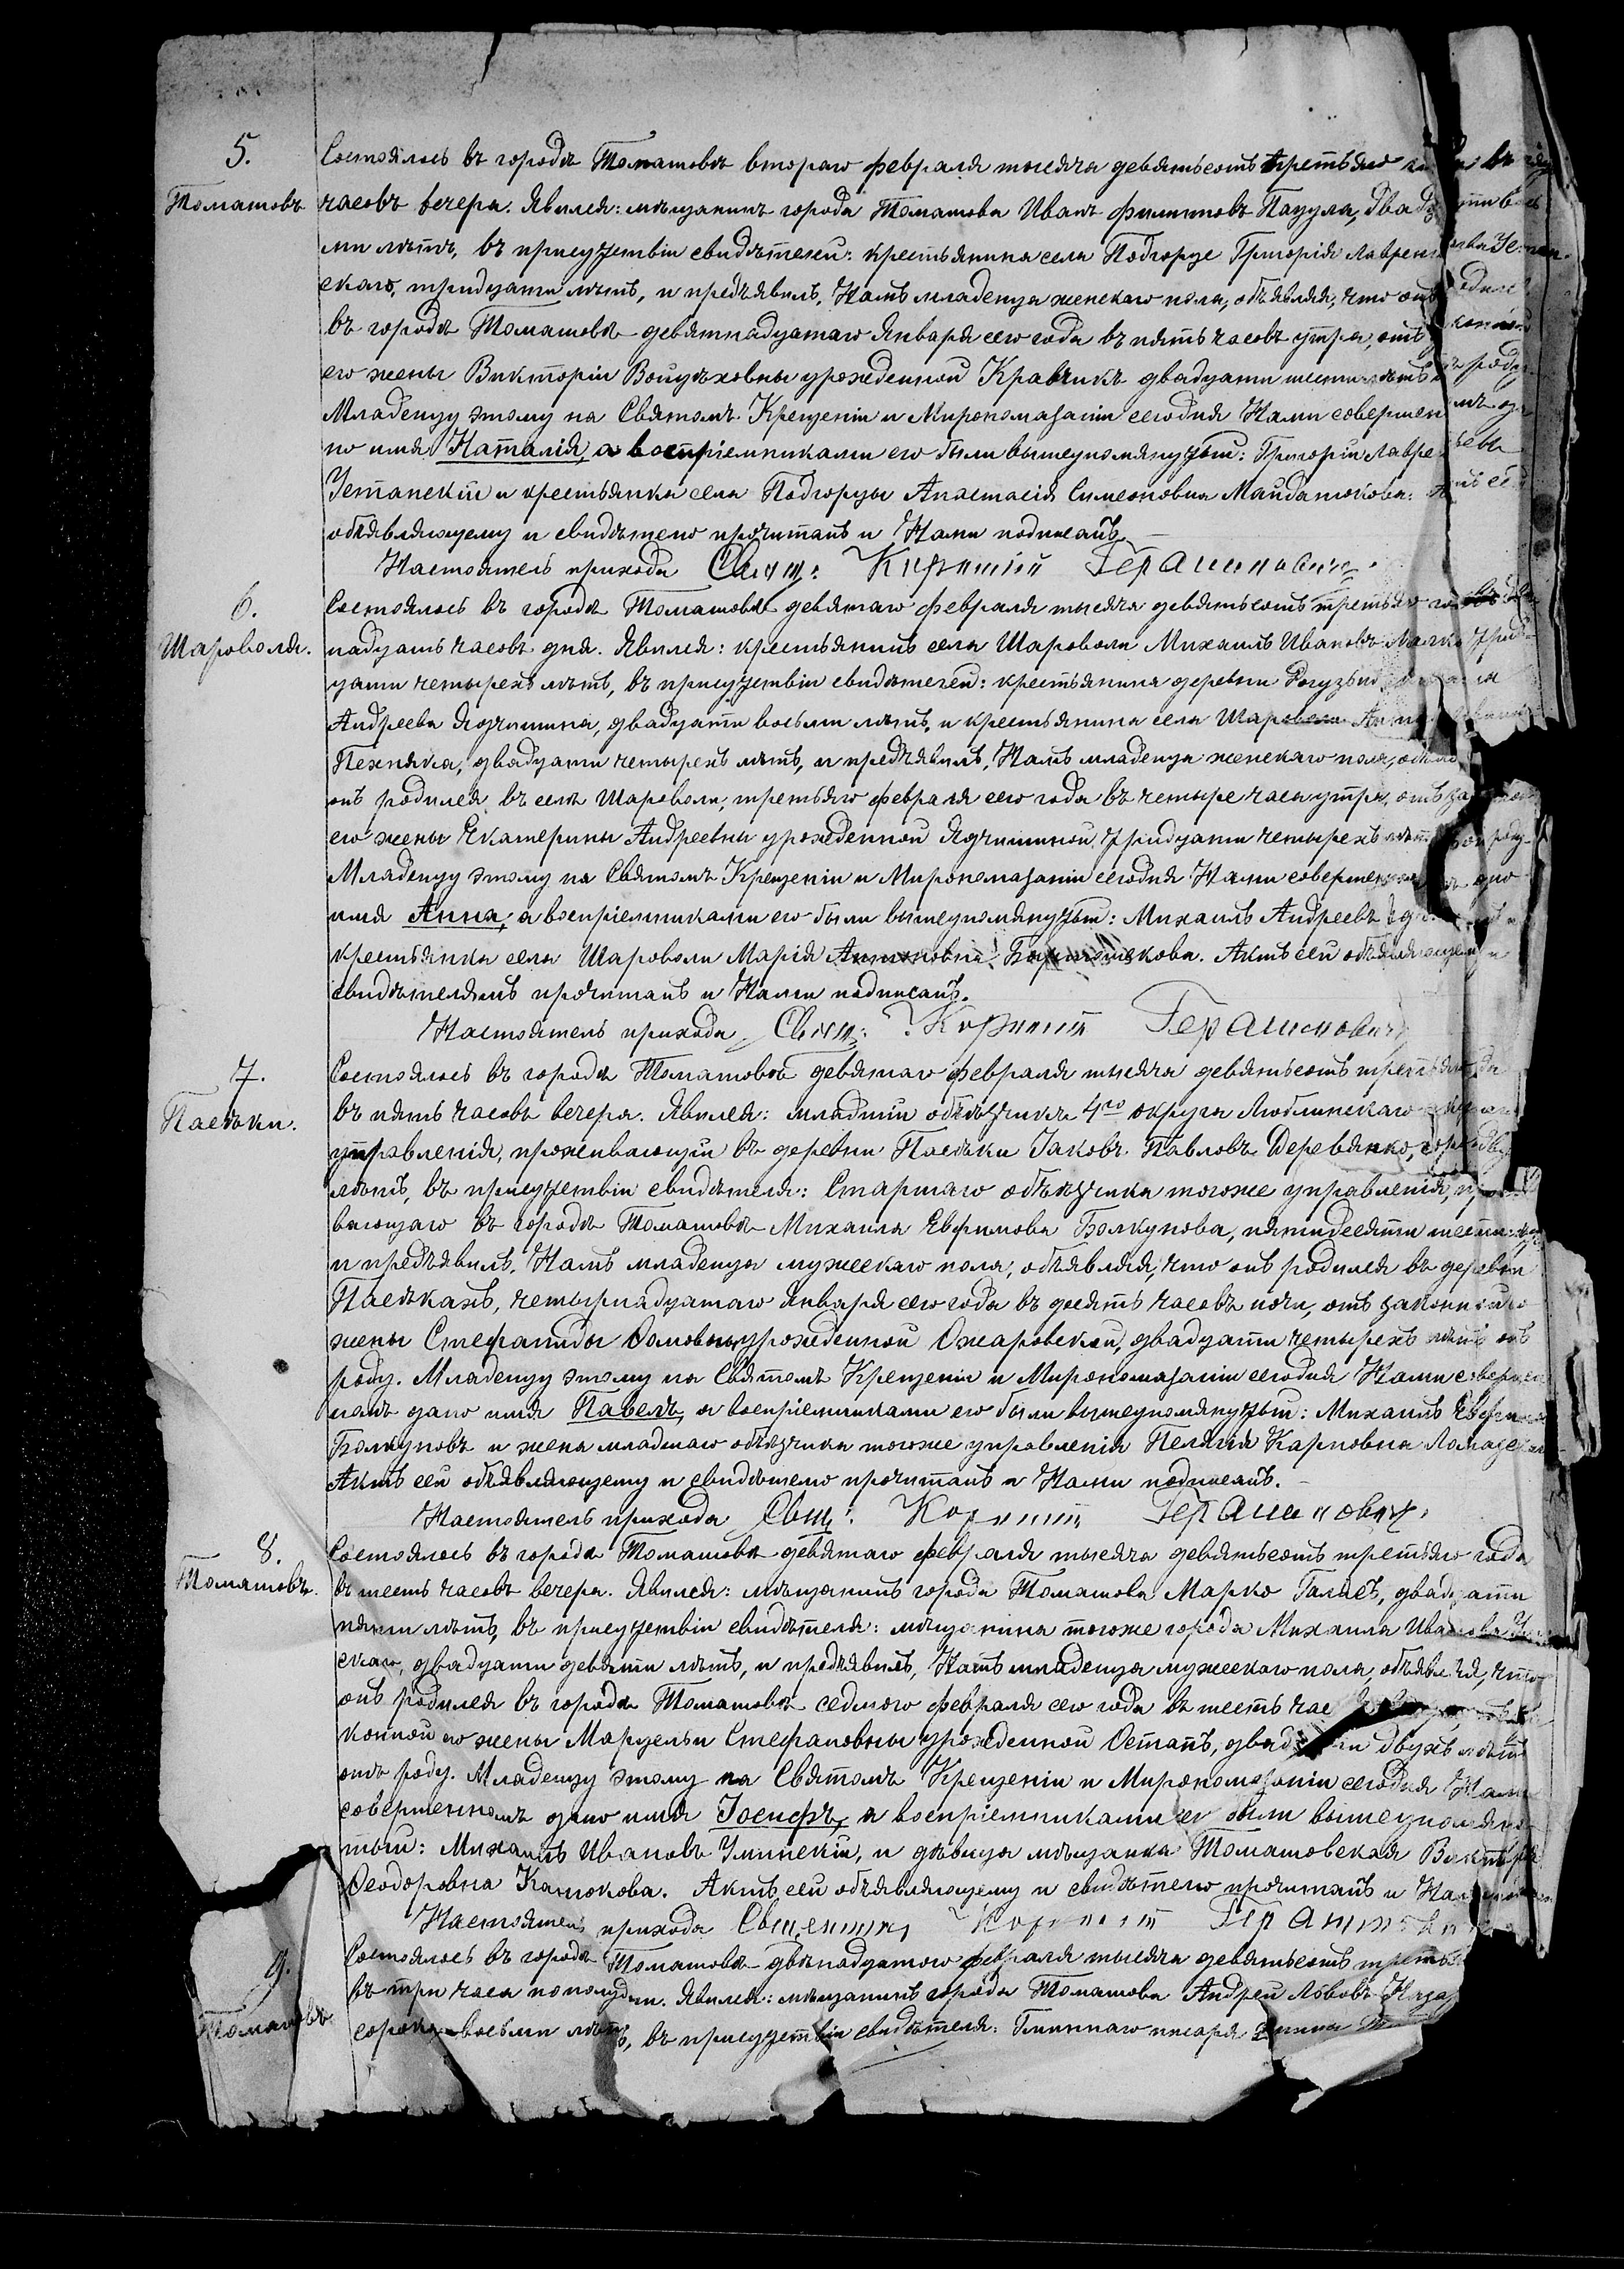 5.
Томашовъ
Состоялось въ городѣ Томашовѣ втораго февраля тысяча девятьсотъ третьяго
часовъ вечера. Явился: мѣщанинъ города Томашова Иванъ Филиповъ Пацула, двадцати вось
ми лѣтъ, въ присутствіи свидѣтелей: крестьянина села Подгорце Григорія Лаврен
скаго, тридцати лѣтъ, и предъявилъ Намъ младенца женскаго пола, объявляя, что онъ родился
въ городѣ Томашовѣ девятнадцатаго Января сего года въ пять часовъ утра, отъ законной
его жены Викторіи Войцѣховны урожденной Кравчикъ двадцати шести лѣтъ роду
Младенцу этому на Святомъ Крещеніи и Миропомазаніи сегодня Нами совершен омъ да
но имя Наталія, а воспріемниками его были вышеупомянутый: Григорій Лавре
Устанскій и крестьянка села Подгорцы Анастасія Симеоновна Майданюкова: Актъ сей
объявляющему и свидѣтелю прочитанъ и Нами подписанъ.
Настоятель прихода Свящ: Корнилій Герасимовичъ.
6.
Шароволя.
Состоялось въ городѣ Томашовѣ девятаго февраля тысяча девятьсотъ третьяго года въ две
надцать часовъ дня. Явился: крестьянинъ села Шароволи Михаилъ Ивановъ трид
цати четырехъ лѣтъ, въ присутствіи свидѣтелей: крестьянина деревни Рогузьно
Андреева Ядчишина, двадцати восьми лѣтъ, и крестьянина села Шароволи
Пехняка, двадцати четырехъ лѣтъ, и предъявилъ Намъ младенца женскаго пола,
онъ родился въ селѣ Шароволи, третьяго февраля сего года въ четыре часа утра, отъ законной
его жены Екатерины Андреевны урожденной Ядчишиной тридцати четырехъ лѣтъ роду
Младенцу этому на Святомъ Крещеніи и Миропомазаніи сегодня Нами совершенномъ дано
имя Анна, а воспріемниками его были вышеупомянутый: Михаилъ Андреевъ
крестьянка села Шароволи Марія Антоновна кова. Актъ сей объявляющему и
свидѣтелямъ прочитанъ и Нами подписанъ.
Настоятель прихода Свящ: Корнилій Герасимовичъ
7.
Пасѣки.
Состоялось въ городѣ Томашовѣ девятаго февраля тысяча девятьсотъ третьяго года
въ пять часовъ вечера. Явился: младшій объѣзчикъ 4го округа Люблинскаго
управленія, проживающій въ деревни Пасѣки Іаковъ Павловъ Деревянко,
лѣтъ, въ присутствіи свидѣтеля: Старшаго объѣзчика тогоже управленія, прожи
вающаго въ городѣ Томашовѣ Михаила Евфимова Болкунова, пятидесяти шести
и предъявилъ Намъ младенца мужескаго пола, объявляя, что онъ родился въ деревни
Пасѣкахъ, четырнадцатаго Января сего года въ десять часовъ ночи, отъ законной его
жены Стефаниды урожденной Ожаровской, двадцати четырехъ лѣтъ отъ
роду. Младенцу этому на Святомъ Крещеніи и Миропомазаніи сегодня Нами совершен
номъ дано имя Павелъ, а воспріемниками его были вышеупомянутый: Михаилъ Евфимовъ
Болкуновъ и жена младшаго объѣзчика тогоже управленія Пелагія Карповна
Актъ сей объявляющему и свидѣтелю прочитанъ и Нами подписанъ.
Настоятель прихода Свящ: Корнилій Герасимовичъ.
8.
Томашовъ.
Состоялось въ городѣ Томашовѣ девятаго февраля тысяча девятьсотъ третьяго года
въ шесть часовъ вечера. Явился: мѣщанинъ города Томашова Марко Галасъ, двадцати
пяти лѣтъ, въ присутствіи свидѣтеля: мѣщанина тогоже города Михаила Иванова
скаго, двадцати девяти лѣтъ, и предъявилъ Намъ младенца мужескаго пола, объявляя, что
онъ родился въ городѣ Томашовѣ седмого февраля сего года въ шесть час
конной его жены Марцельи Стефановны урожденной Остапъ, двадцати двухъ лѣтъ
отъ роду. Младенцу этому на Святомъ Крещеніи и Миропомазаніи сегодня Нами
совершенномъ дано имя Іосифъ, а воспріемниками его были вышеупомяну
тый: Михаилъ Ивановъ Улинскій, и дѣвица мѣщанка Томашовская Викторія
Ѳеодоровна Катюкова. Актъ сей объявляющему и свидѣтелю прочитанъ и Нами
Настоятель прихода Священникъ Корнилій Герасимовичъ
9.
Томашовъ
Состоялось въ городѣ Томашовѣ двѣнадцатого февраля тысяча девятьсотъ третья
въ три часа пополудни. Явился: мѣщанинъ города Томашова Андрей Львовъ
сорока восьми лѣтъ, въ присутствіи свидѣтеля: Гминнаго писаря